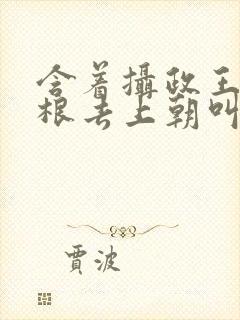 含着攝政王
根去上朝叫
賈波